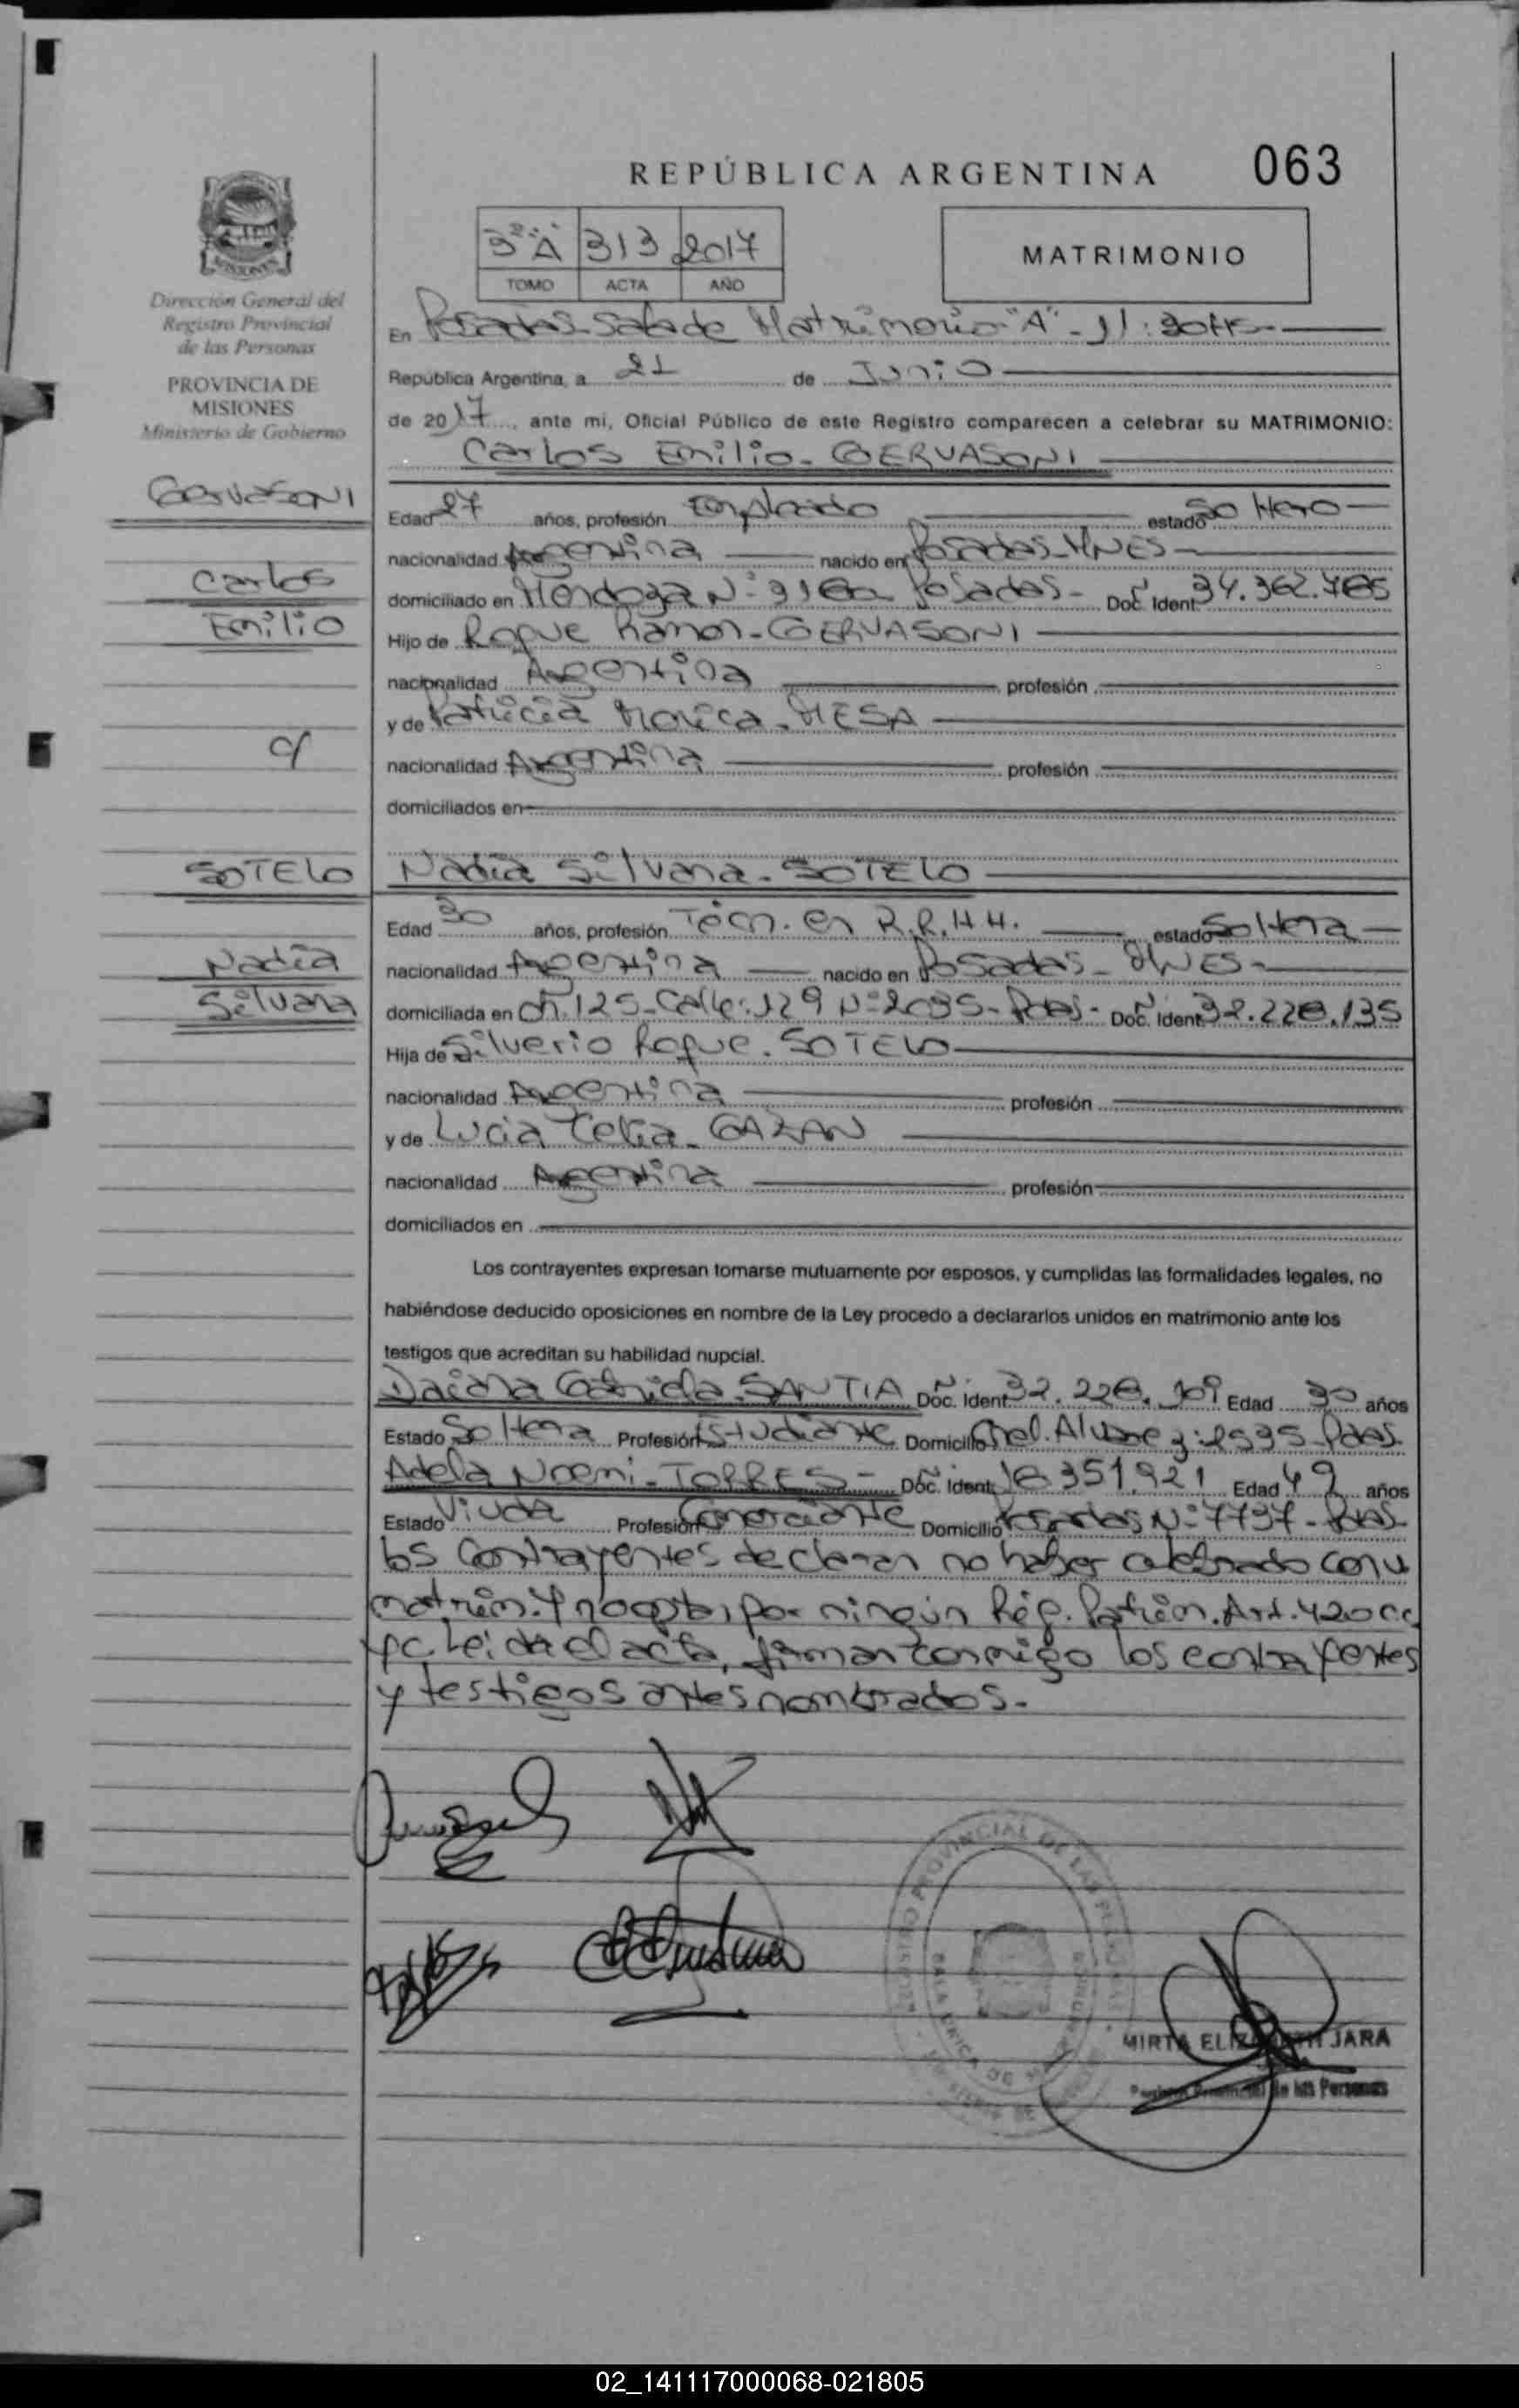 REPÚBLICA ARGENTINA 063
3º A 313 2017
TOMO ACTA AÑO
MATRIMONIO
MISIONES
Dirección General del
Registro Provincial
de las Personas
PROVINCIA DE
MISIONES
Ministerio de Gobierno
En Posadas-Sala de Matrimonio "A" - 11:30 Hs-
República Argentina, a 21 de Junio
de 2017, ante mi, Oficial Público de este Registro comparecen a celebrar su MATRIMONIO:
Carlos Emilio - GERVASONI
GERVASONI
Carlos
Emilio
c/
SOTELO
Nadia
Silvana
Edad 27 años, profesión Empleado estado Soltero
nacionalidad Argentina nacido en Posadas-MNES-
domiciliado en Mendoza Nº Posadas- Doc. Ident. 34.362.765
Hijo de Roque Ramon-GERVASONI
nacionalidad Argentina profesión
y de Patricia Monica-MESA
nacionalidad Argentina profesión
domiciliados en
Nadia Silvana-SOTELO
Edad 30 años, profesión Técn. en R.R.H.H. estado Soltera
nacionalidad Argentina nacido en Posadas-MNES-
domiciliada en Ch. 125-Calle: 129 Nº 2095-Pdas- Doc. Ident. 32.228.135
Hija de Silverio Roque-SOTELO
nacionalidad Argentina profesión
y de Lucia Celia-GAZAN
nacionalidad Argentina profesión
domiciliados en
Los contrayentes expresan tomarse mutuamente por esposos, y cumplidas las formalidades legales, no
habiéndose deducido oposiciones en nombre de la Ley procedo a declararlos unidos en matrimonio ante los
testigos que acreditan su habilidad nupcial.
Daiana Gabriela-SANTIA Doc. Ident. 32.228.109 Edad 30 años
Estado Soltera Profesión Estudiante Domicilio Cnel. Alvarez: 2595-Pdas.
Adela Noemi-TORRES- Doc. Ident. 18.351.921 Edad 49 años
Estado Viuda Profesión Comerciante Domicilio Posadas Nº 7797-Pdas-
los contrayentes declaran no haber celebrado conv.
matrim. y no optar por ningún Rég. Patrim. Art. 420 CC
yC. Leida el acta, firman conmigo los contrayentes
y testigos antes nombrados.-
REGISTRO PROVINCIAL DE LAS PERSONAS
MIRTA ELIZABETH JARA
Registro Provincial de las Personas
02_141117000068-021805